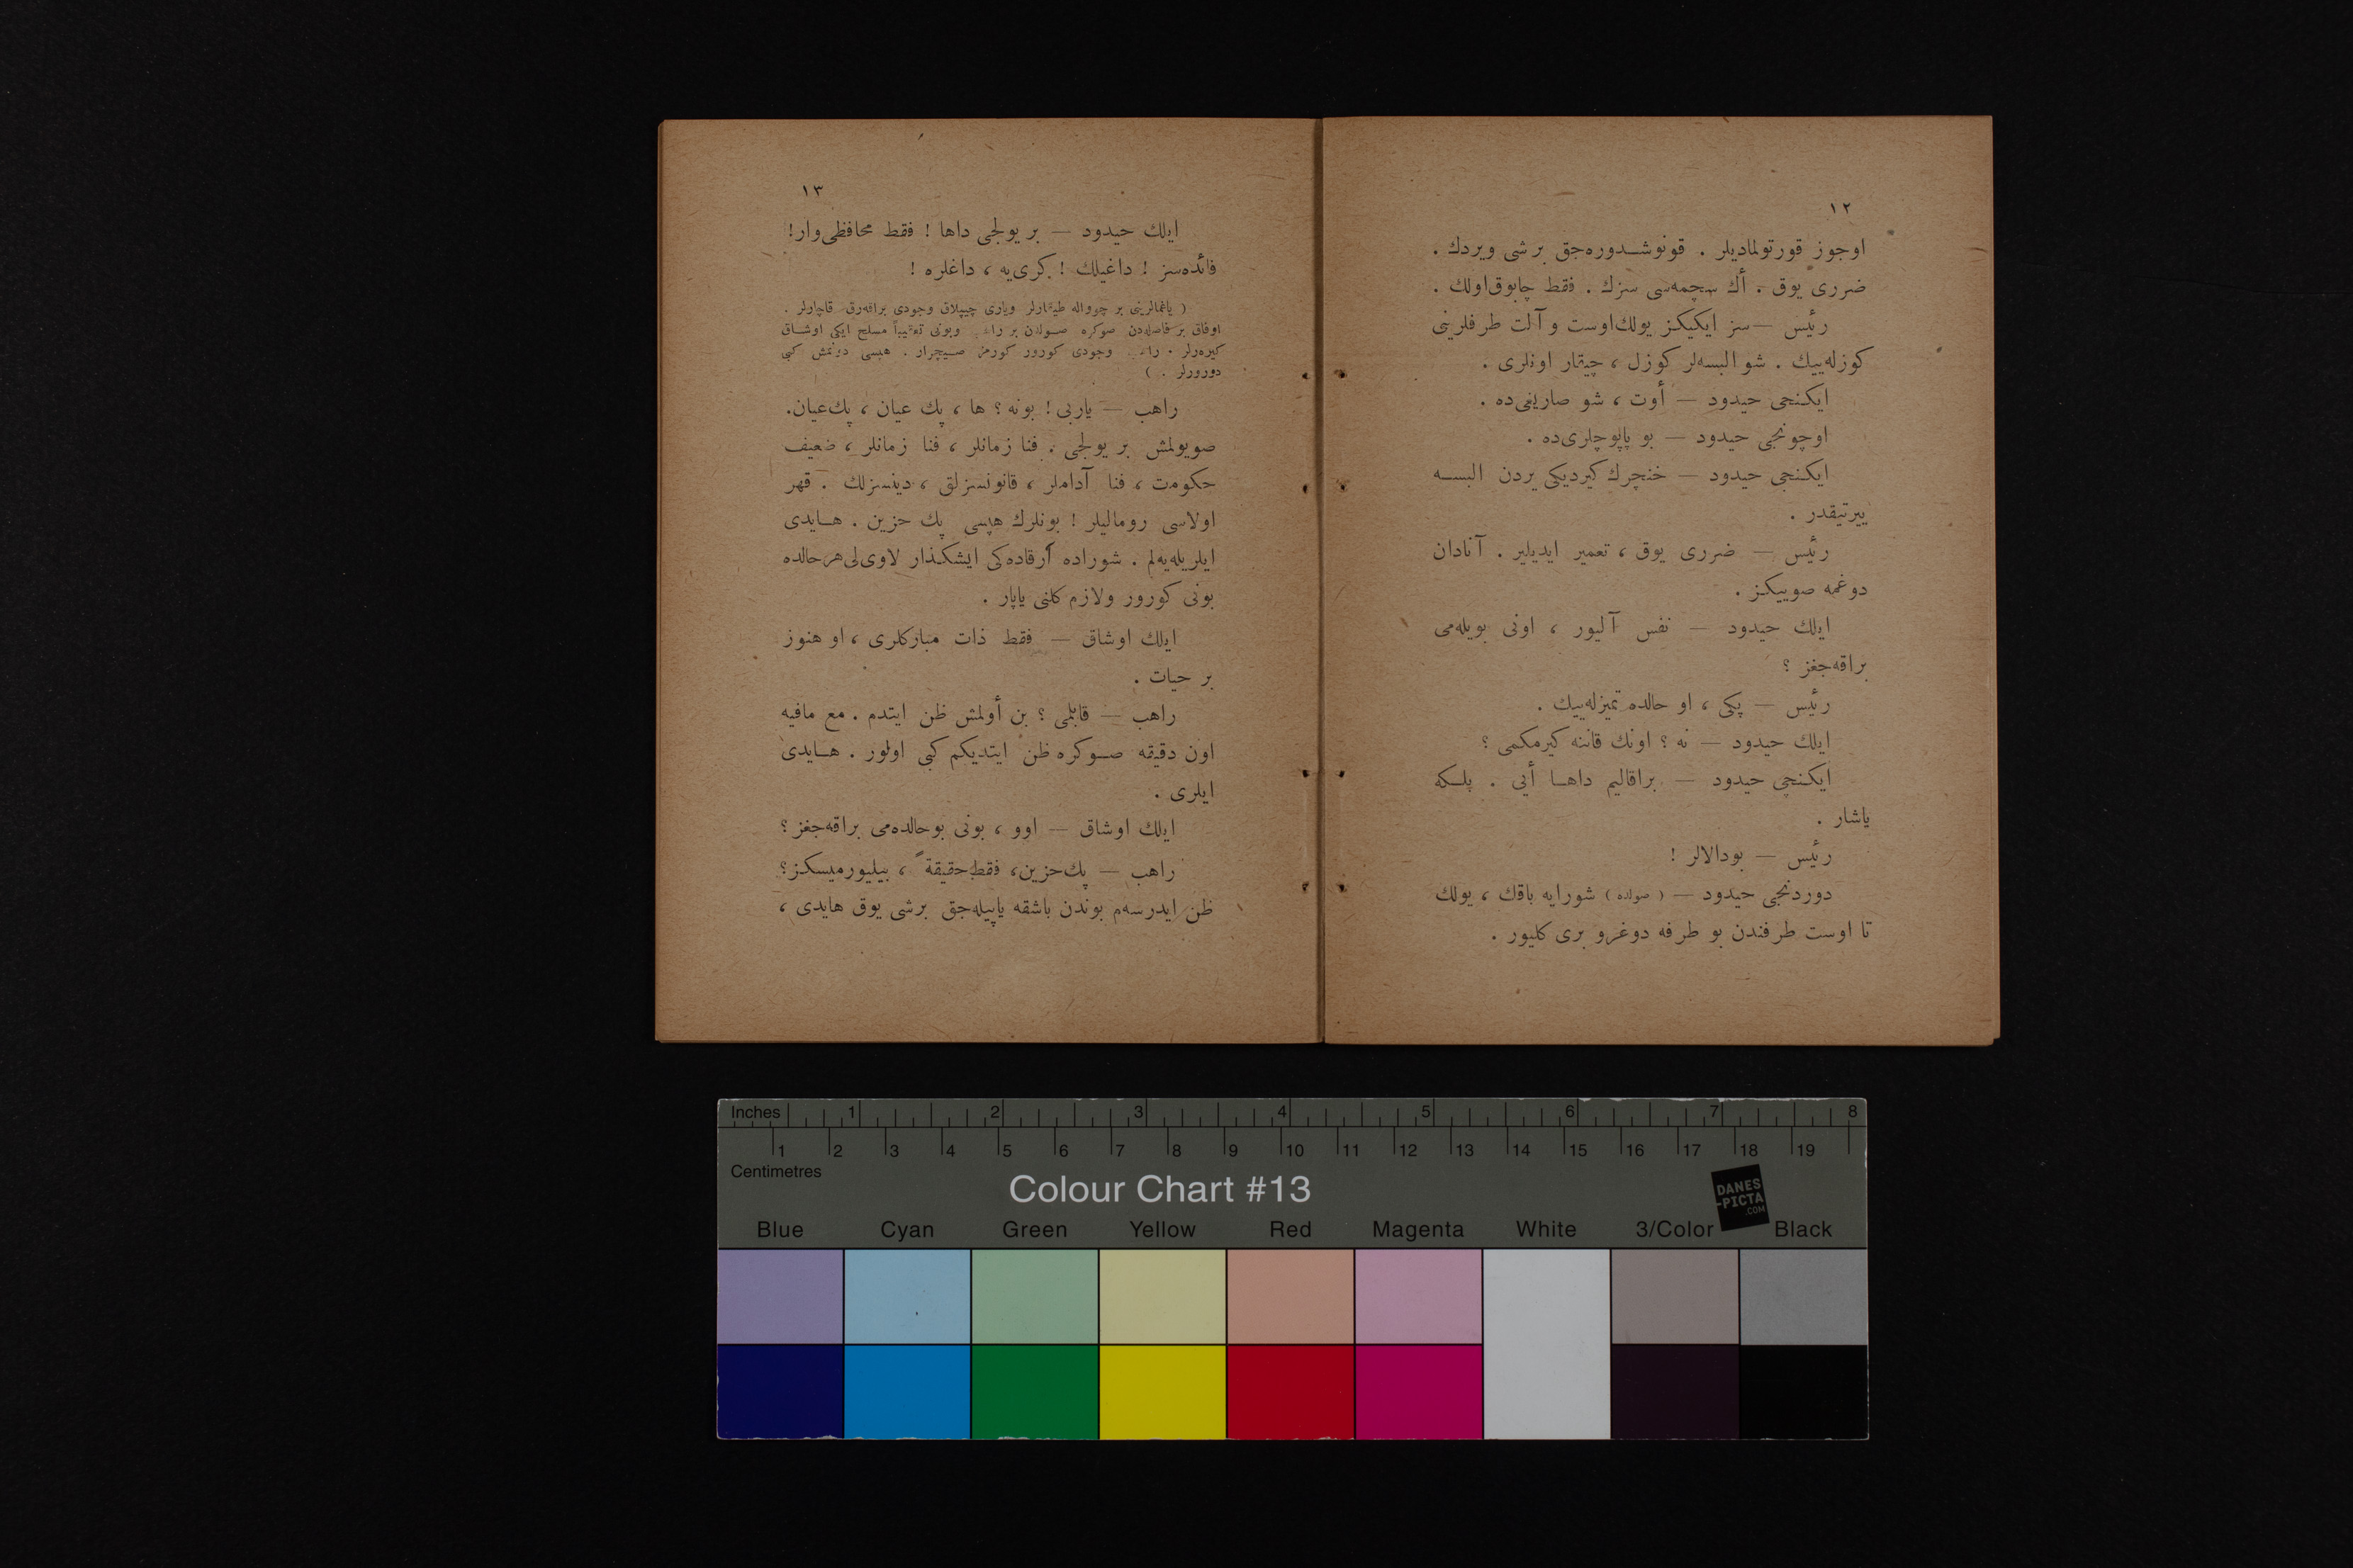 ١٢
اوجوز قورتولمادیلر . قونوشدورەجق برشی ویردك .
ضرری یوق . أك سچمەسی سزك . فقط چابوق اولك .
رئیس — سز ایكیكز یولك اوست و آلت طرفلرینی
كوزلەییك . شو البسەلر كوزل ، چیقار اونلری .
ایكنجی حیدود — أوت ، شو صاریغی ده .
اوچونجی حیدود — بو پاپوچلری ده .
ایكنجی حیدود — خنجرك كیردیكی یردن البسه
ییرتیقدر .
رئیس — ضرری یوق ، تعمیر ایدیلیر . آنادان
دوغمه صوییكز .
ایلك حیدود — نفس آلیور ، اونی بویلەمی
براقەجغز ؟
رئیس — پكی ، او حالده تمیزلەییك .
ایلك حیدود — نه ؟ اونك قاننه كیرمكمی ؟
ایكنجی حیدود — براقالیم داها أیی . بلسكه
یاشار .
رئیس — بودالالر !
دوردنجی حیدود — ( صولده ) شورایه باقك ، یولك
تا اوست طرفندن بو طرفه دوغرو بری كلیور .
١٣
ایلك حیدود — بر یولجی داها ! فقط محافظی وار!
فائدەسز ! داغیلك ! كری یه ، داغلره !
( یاغمالرینی بر چوواله طیقارلر ویاری چیپلاق وجودی براقەرق قاچارلر .
اوفاق بر فاصلەدن صوكره صولدن بر وبونی تعقیباً مسلح ایكی اوشاق
كیرەرلر . وجودی كورور كورمز صیچرار . هپسی دونمش كبی
دورورلر . )
راهب — یاربی ! بونه ؟ ها ، پك عیان ، پك عیان.
صویولمش بر یولجی . فنا زمانلر ، فنا زمانلر ، ضعیف
حكومت ، فنا آداملر ، قانونسزلق ، دینسزلك . قهر
اولاسی رومالیلر ! بونلرك هپسی پك حزین . هایدی
ایلریلەیەلم . شوراده آرقادەكی ایشكذار لاوی لی هر حالده
بونی كورور ولازم كلنی یاپار .
ایلك اوشاق — فقط ذات مباركلری ، او هنوز
بر حیات .
راهب — قابلمی ؟ بن أولمش ظن ایتدم . مع مافیه
اون دقیقه صوكره ظن ایتدیكم كبی اولور . هایدی
ایلری .
ایلك اوشاق — اوو ، بونی بوحالدەمی براقەجغز ؟
راهب — پك حزین، فقط حقیقةً ، بیلیورمیسكز؟
ظن ایدرسەم بوندن باشقه یاپیلەجق برشی یوق هایدی ،
Inches 1 2 3 4 5 6 7 8
1 2 3 4 5 6 7 8 9 10 11 12 13 14 15 16 17 18 19
Centimetres
Colour Chart #13
DANES
-PICTA
.COM
Blue Cyan Green Yellow Red Magenta White 3/Color Black